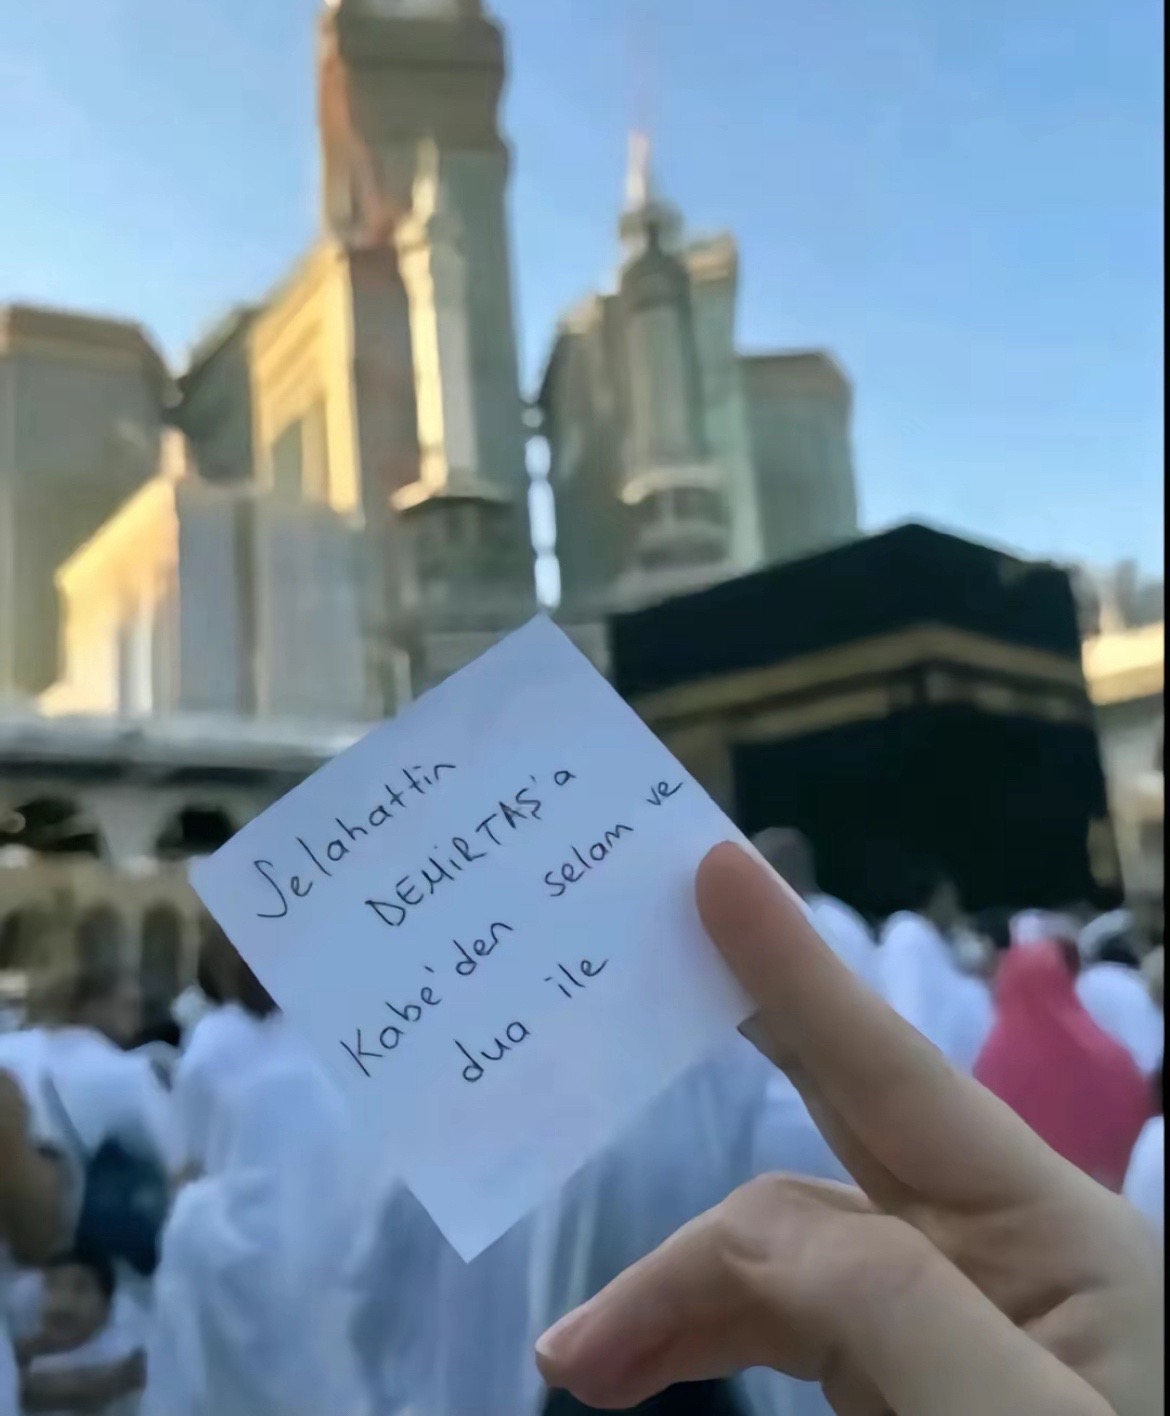 Selahattin
DEMiRTAŞ'a
Kabe'den selam ve
dua ile